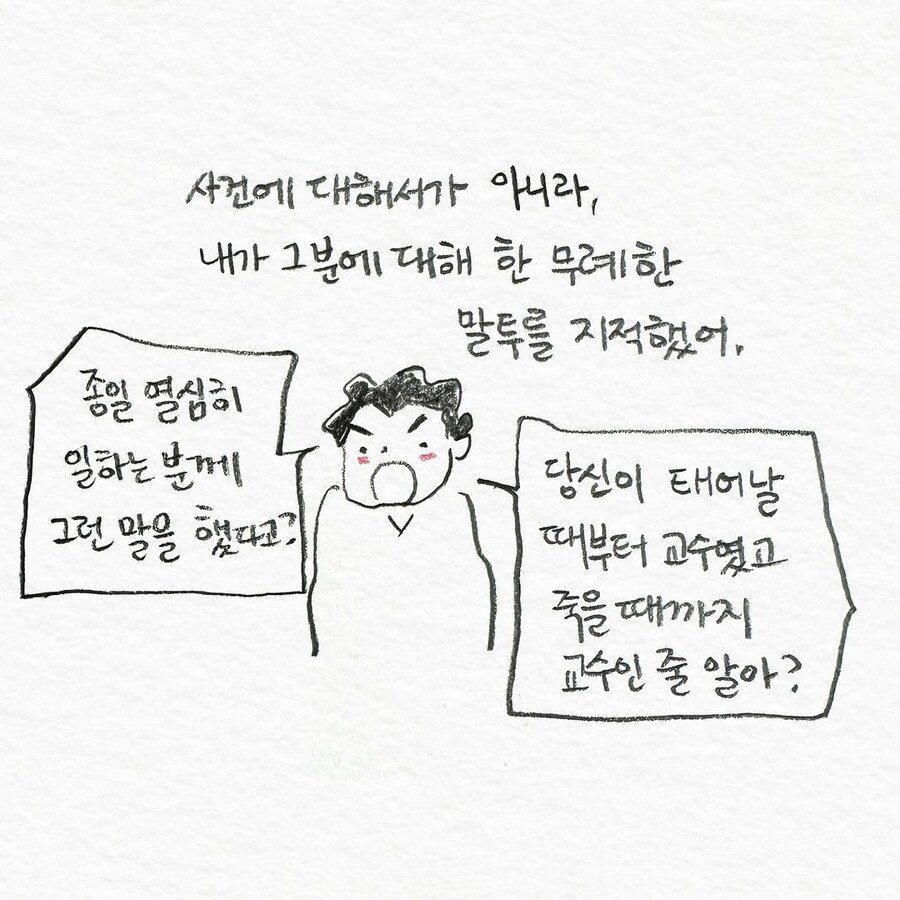 사건에 대해서가 아니라,
내가 그분에 대해 한 무례한
말투를 지적했어.
종일 열심히
일하는 분께
그런 말을 했다고?
당신이 태어날
때부터 교수였고
죽을 때까지
교수인 줄 알아?